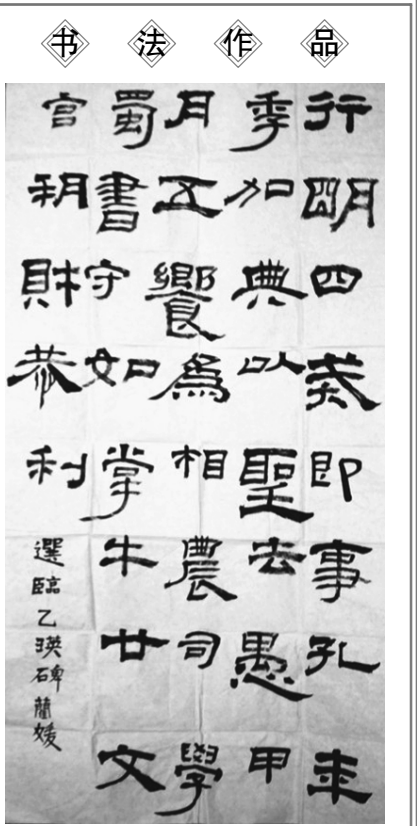 书法作品
行明四即事孔来
季加典以聖去愚甲
月五饗為相農司學
蜀書守如掌牛廿文
官財恭利
選臨乙瑛碑媛